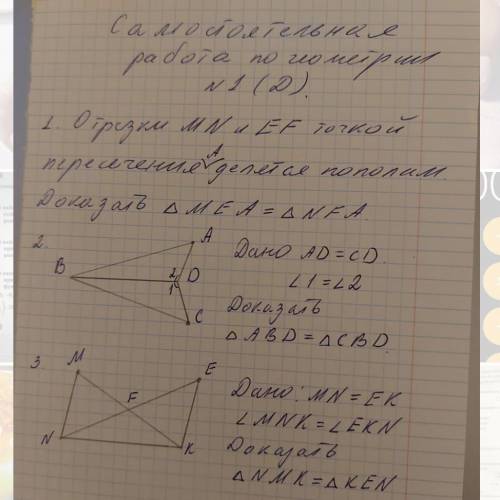 Самостоятельная
работа по геометрии
№1 (D).
1. Отрезки MN и EF точкой
пересечения A делятся пополам.
Доказать △MEA = △NFA.
2.
A
B
2
1
D
C
Дано AD = CD.
∠1 = ∠2
Доказать
△ABD = △CBD.
3.
M
E
F
N
K
Дано: MN = EK
∠MNK = ∠EKN
Доказать
△NMK = △KEN